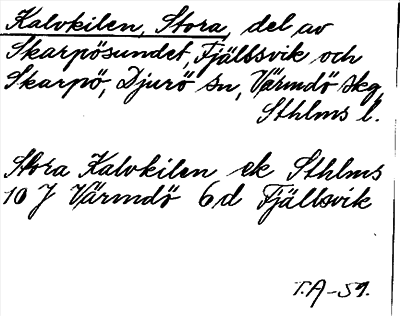 Kalvkilen, Stora, del av
Skarpösundet, Fjällsvik och
Skarpö, Djurö sn, Värmdö skg,
Sthlms l.
Stora Kalvkilen ek Sthlms
10 J Värmdö 6d Fjällsvik
T.A-59.